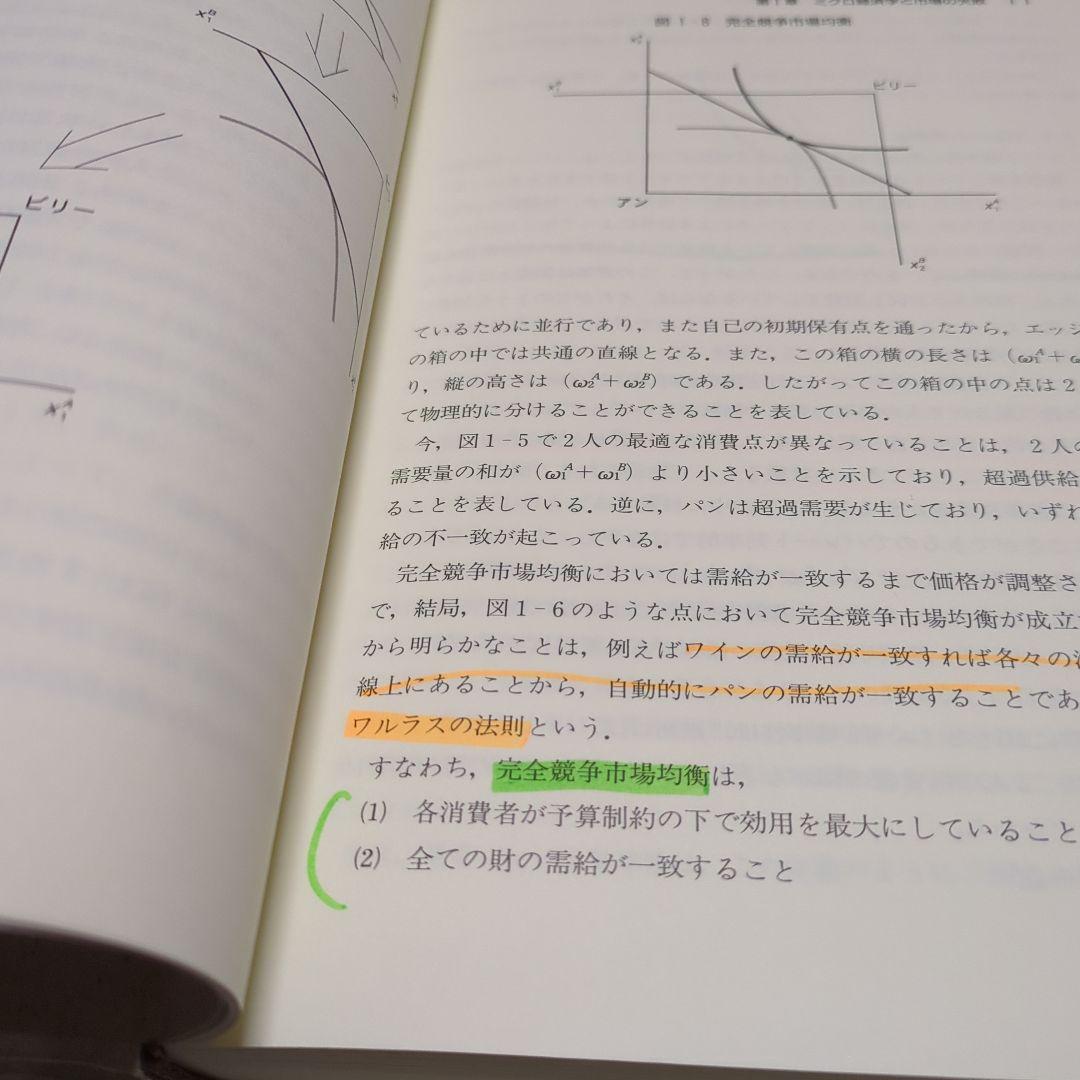 x₁ᴮ
ビリー
x₁ᴬ
第1章 ミクロ経済学と市場の失敗 11
完全競争市場均衡
ビリー
アン
x₁ᴬ
x₂ᴮ
ているために並行であり，また自己の初期保有点を通ったから，エッジ
の箱の中では共通の直線となる．また，この箱の横の長さは（ω₁ᴬ＋
り，縦の高さは（ω₂ᴬ＋ω₂ᴮ）である．したがってこの箱の中の点は2
て物理的に分けることができることを表している．
今，図1-5で2人の最適な消費点が異なっていることは，2人の
需要量の和が（ω₁ᴬ＋ω₁ᴮ）より小さいことを示しており，超過供給
ることを表している．逆に，パンは超過需要が生じており，いずれ
給の不一致が起こっている．
完全競争市場均衡においては需給が一致するまで価格が調整さ
で，結局，図1-6のような点において完全競争市場均衡が成立
から明らかなことは，例えばワインの需給が一致すれば各々の
線上にあることから，自動的にパンの需給が一致することであ
ワルラスの法則という．
すなわち，完全競争市場均衡は，
(1) 各消費者が予算制約の下で効用を最大にしていること
(2) 全ての財の需給が一致すること